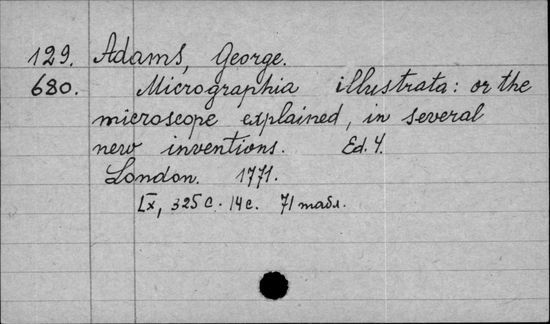 129. Adams, George.
680. Micrographia illustrata: or the
microscope explained, in several
new inventions. Ed. 4.
London. 1771.
IX, 325 с. 14 с. 71 табл.